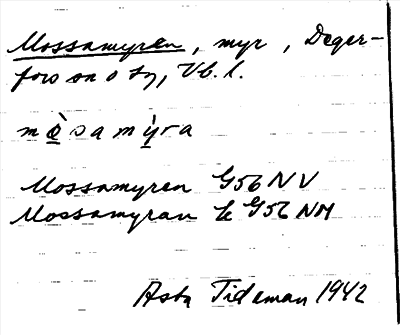 Mossamyren, myr, Deger-
fors sn o ty, Vb. l.
mò̲samỳ̲ra
Mossamyren G56 NV
Mossamyran k G56 NM
Asta Tideman 1942